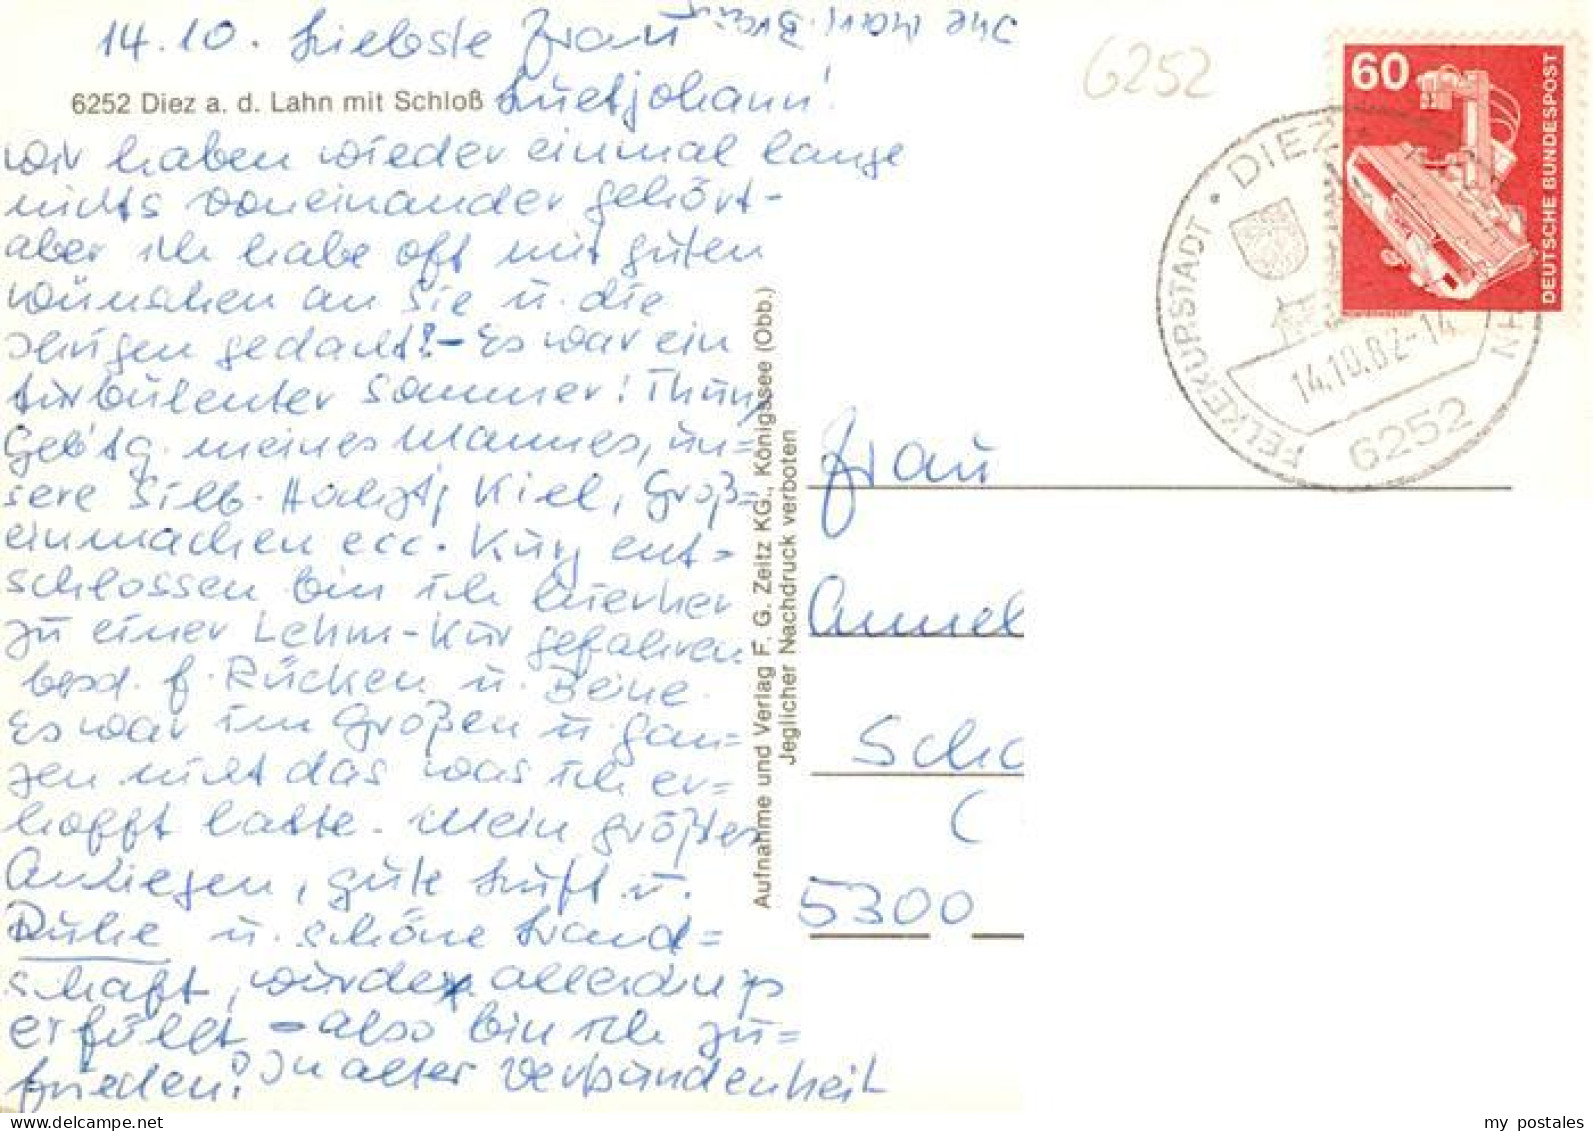 14.10. Liebste Frau
6252 Diez a. d. Lahn mit Schloß
Luetjohann!
wir haben wieder einmal lange
nichts voneinander gehört -
aber ich habe oft mit guten
Wünschen an Sie u. die
Jungen gedacht! - Es war ein
turbulenter Sommer!
Gebtg. meines Mannes, un=
sere Silb. Hochzt, Kiel, Groß=
einmachen ecc. Kurz ent=
schlossen bin ich hierher
zu einer Lehm-Kur gefahren
besd. f. Rücken u. Beine.
Es war im Großen u. gan=
zen nicht das was ich er=
hofft hatte. Mein größtes
Anliegen, gute Luft u.
Ruhe u. schöne Land=
schaft, wurde allerdings
erfüllt - also bin ich zu=
frieden! In alter Verbundenheit
Aufnahme und Verlag F. G. Zeitz KG., Königssee (Obb.)
Jeglicher Nachdruck verboten
6252
60
DEUTSCHE BUNDESPOST
FELKEKURSTADT · DIEZ
14.10.82-14
6252
Frau
Annel
Sch
5300
my postales